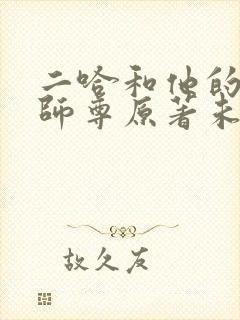 二哈和他的
師尊原著未
故欠友